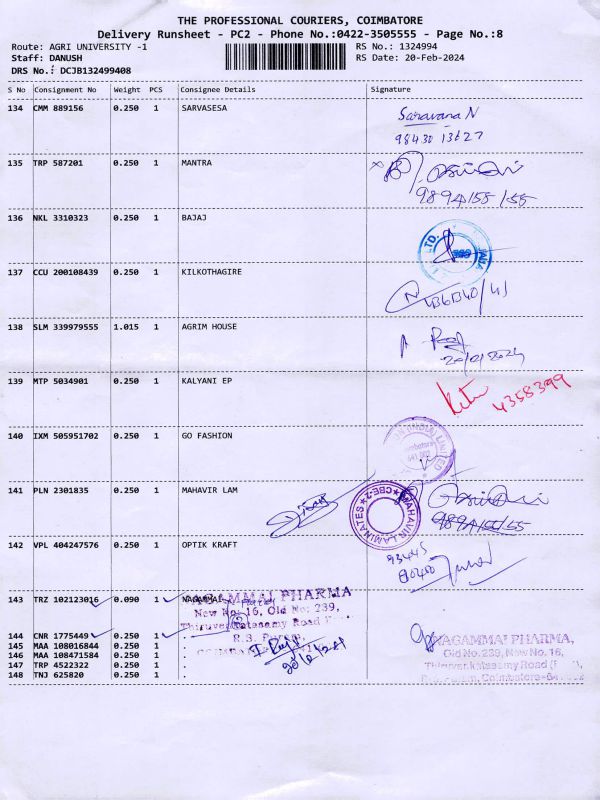 THE PROFESSIONAL COURIERS, COIMBATORE
Delivery Runsheet - PC2 - Phone No.:0422-3505555 - Page No.:8
Route: AGRI UNIVERSITY -1
RS No.: 1324994
Staff: DANUSH
RS Date: 20-Feb-2024
DRS No.: DCJB132499408
S No Consignment No Weight PCS Consignee Details Signature
134 CMM 889156 0.250 1 SARVASESA
Saravana N
98430 13627
135 TRP 587201 0.250 1 MANTRA
9894155155
136 NKL 3310323 0.250 1 BAJAJ
LTD.
137 CCU 200108439 0.250 1 KILKOTHAGIRE
138 SLM 339979555 1.015 1 AGRIM HOUSE
20/02/2024
139 MTP 5034901 0.250 1 KALYANI EP
4358399
140 IXM 505951702 0.250 1 GO FASHION
(INDIA) LIMITED
141 PLN 2301835 0.250 1 MAHAVIR LAM
MAHAVIR LAMINATES ★ CBE-2 ★
9894155155
142 VPL 404247576 0.250 1 OPTIK KRAFT
93445
80450
143 TRZ 102123016 0.090 1 NAGAMMAI
NAGAMMAI PHARMA
New No: 16, Old No: 239,
Thiruvenkatasamy Road
R.S. Puram,
144 CNR 1775449 0.250 1 .
NAGAMMAI PHARMA,
Old No. 239, New No. 16,
Thiruvenkatasamy Road
R.S. Puram, Coimbatore-64
145 MAA 108016844 0.250 1 .
146 MAA 108471584 0.250 1 .
147 TRP 4522322 0.250 1 .
148 TNJ 625820 0.250 1 .